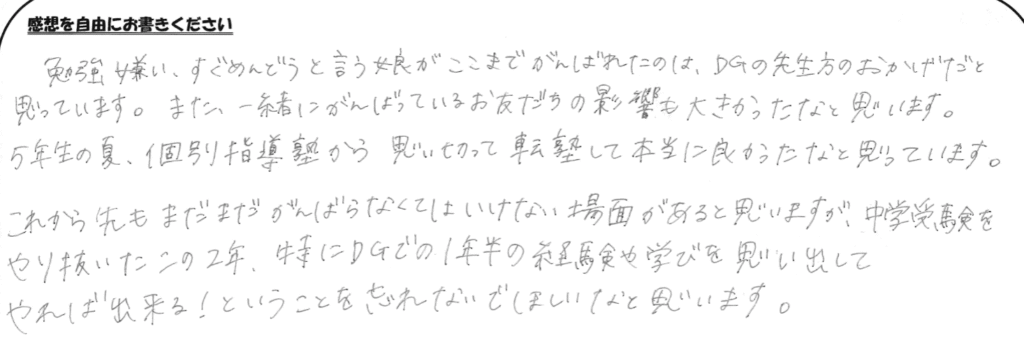 感想を自由にお書きください
勉強嫌い、すぐめんどうと言う娘がここまでがんばれたのは、DGの先生方のおかげだと
思っています。また、一緒にがんばっているお友だちの影響も大きかったなと思います。
5年生の夏、個別指導塾から思い切って転塾して本当に良かったなと思っています。
これから先もまだまだがんばらなくてはいけない場面があると思いますが、中学受験を
やり抜いたこの2年、特にDGでの1年半の経験や学びを思い出して
やれば出来る!ということを忘れないでほしいなと思います。